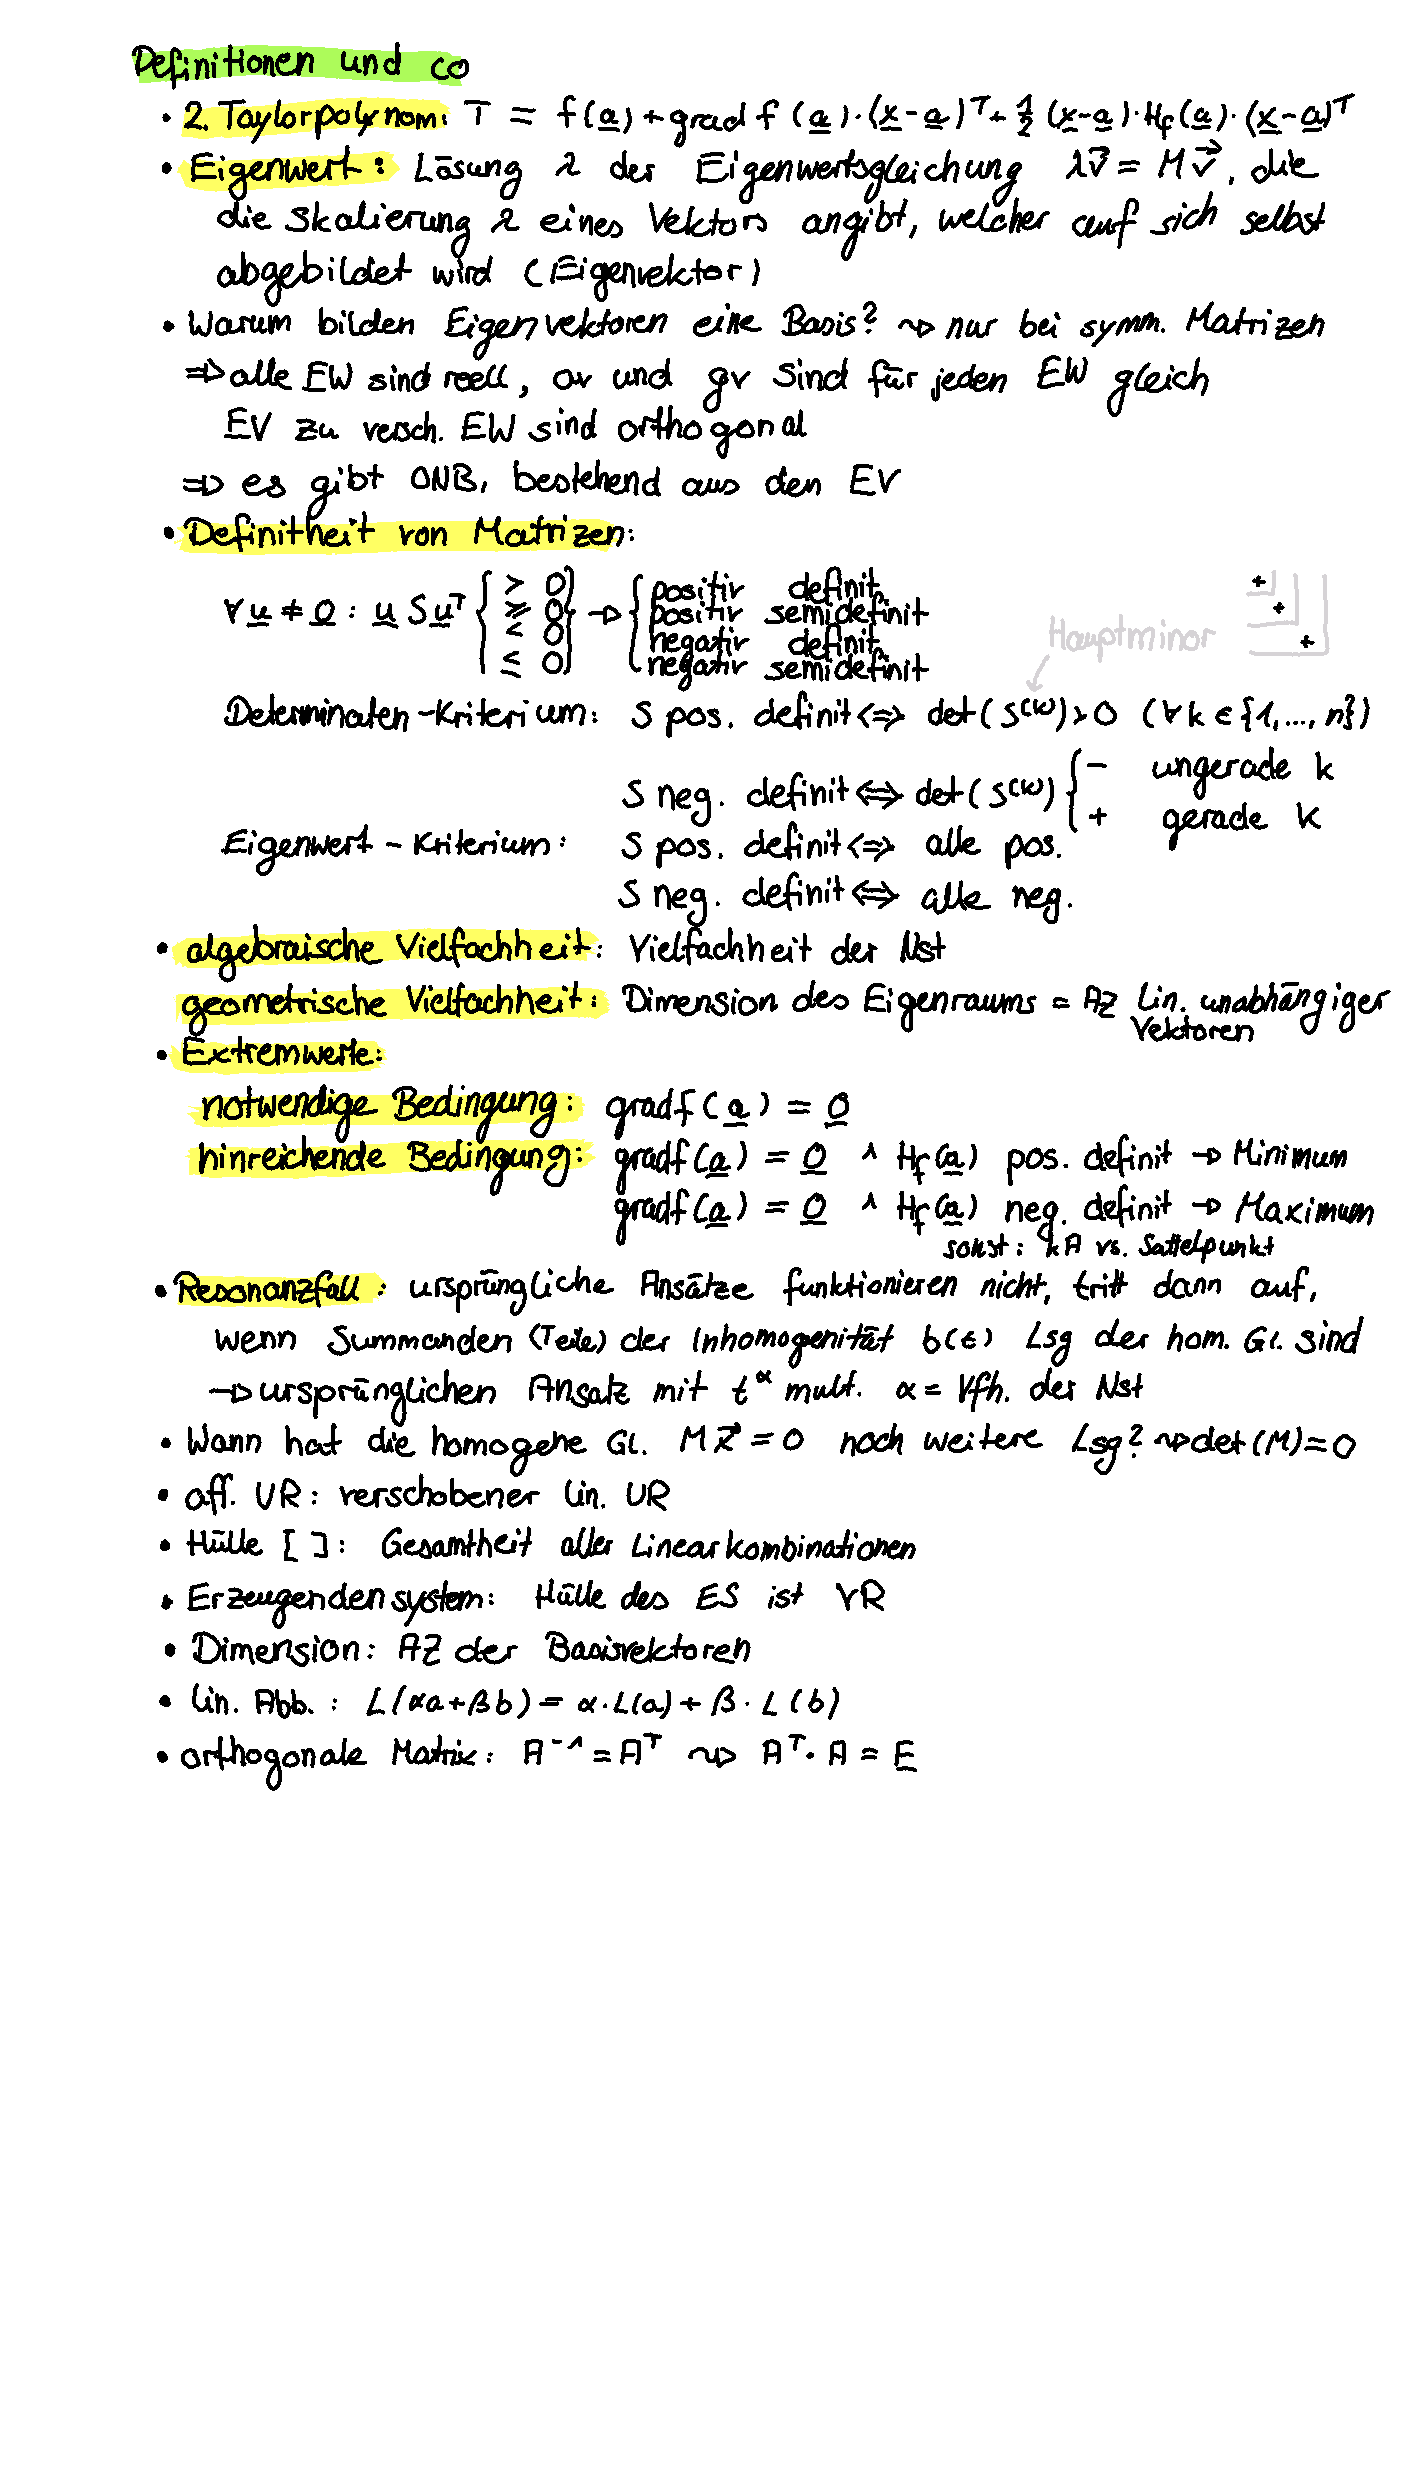 Definitionen und co
• 2. Taylorpolynom: T = f(a) + grad f (a)·(x-a)ᵀ + 1/2 (x-a)·Hf(a)·(x-a)ᵀ
• Eigenwert: Lösung λ der Eigenwertsgleichung λv⃗ = M v⃗, die
die Skalierung λ eines Vektors angibt, welcher auf sich selbst
abgebildet wird (Eigenvektor)
• Warum bilden Eigenvektoren eine Basis? ⇝ nur bei symm. Matrizen
⇒ alle EW sind reell, av und gv sind für jeden EW gleich
EV zu versch. EW sind orthogonal
⇒ es gibt ONB, bestehend aus den EV
• Definitheit von Matrizen:
∀ u ≠ 0 : u S uᵀ { > 0 } → { positiv definit
≥ 0 positiv semidefinit
< 0 negativ definit
≤ 0 negativ semidefinit
+ + +
Hauptminor
Determinaten-Kriterium: S pos. definit ⇔ det(S⁽ᵏ⁾) > 0 (∀ k ∈ {1, ..., n})
S neg. definit ⇔ det(S⁽ᵏ⁾) { - ungerade k
+ gerade k
Eigenwert-Kriterium: S pos. definit ⇔ alle pos.
S neg. definit ⇔ alle neg.
• algebraische Vielfachheit: Vielfachheit der Nst
geometrische Vielfachheit: Dimension des Eigenraums = AZ lin. unabhängiger
Vektoren
• Extremwerte:
notwendige Bedingung: gradf(a) = 0
hinreichende Bedingung: gradf(a) = 0 ∧ Hf(a) pos. definit → Minimum
gradf(a) = 0 ∧ Hf(a) neg. definit → Maximum
sonst: kA vs. Sattelpunkt
• Resonanzfall: ursprüngliche Ansätze funktionieren nicht, tritt dann auf,
wenn Summanden (Teile) der Inhomogenität b(t) Lsg der hom. Gl. sind
→ ursprünglichen Ansatz mit t^α mult. α = Vfh. der Nst
• Wann hat die homogene Gl. M x⃗ = 0 noch weitere Lsg? ⇝ det(M) = 0
• aff. UR: verschobener lin. UR
• Hülle [ ]: Gesamtheit aller Linearkombinationen
• Erzeugendensystem: Hülle des ES ist VR
• Dimension: AZ der Basisvektoren
• lin. Abb.: L(αa+βb) = α·L(a) + β·L(b)
• orthogonale Matrix: A⁻¹ = Aᵀ ⇝ Aᵀ·A = E